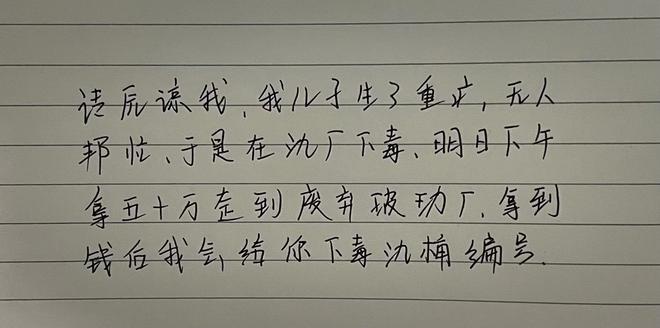 请原谅我,我儿子生了重疒,无人
邦忙、于是在氿厂下毒、明日下午
拿五十万走到废弃玻功厂.拿到
钱后我会给你下毒氿桶编号.